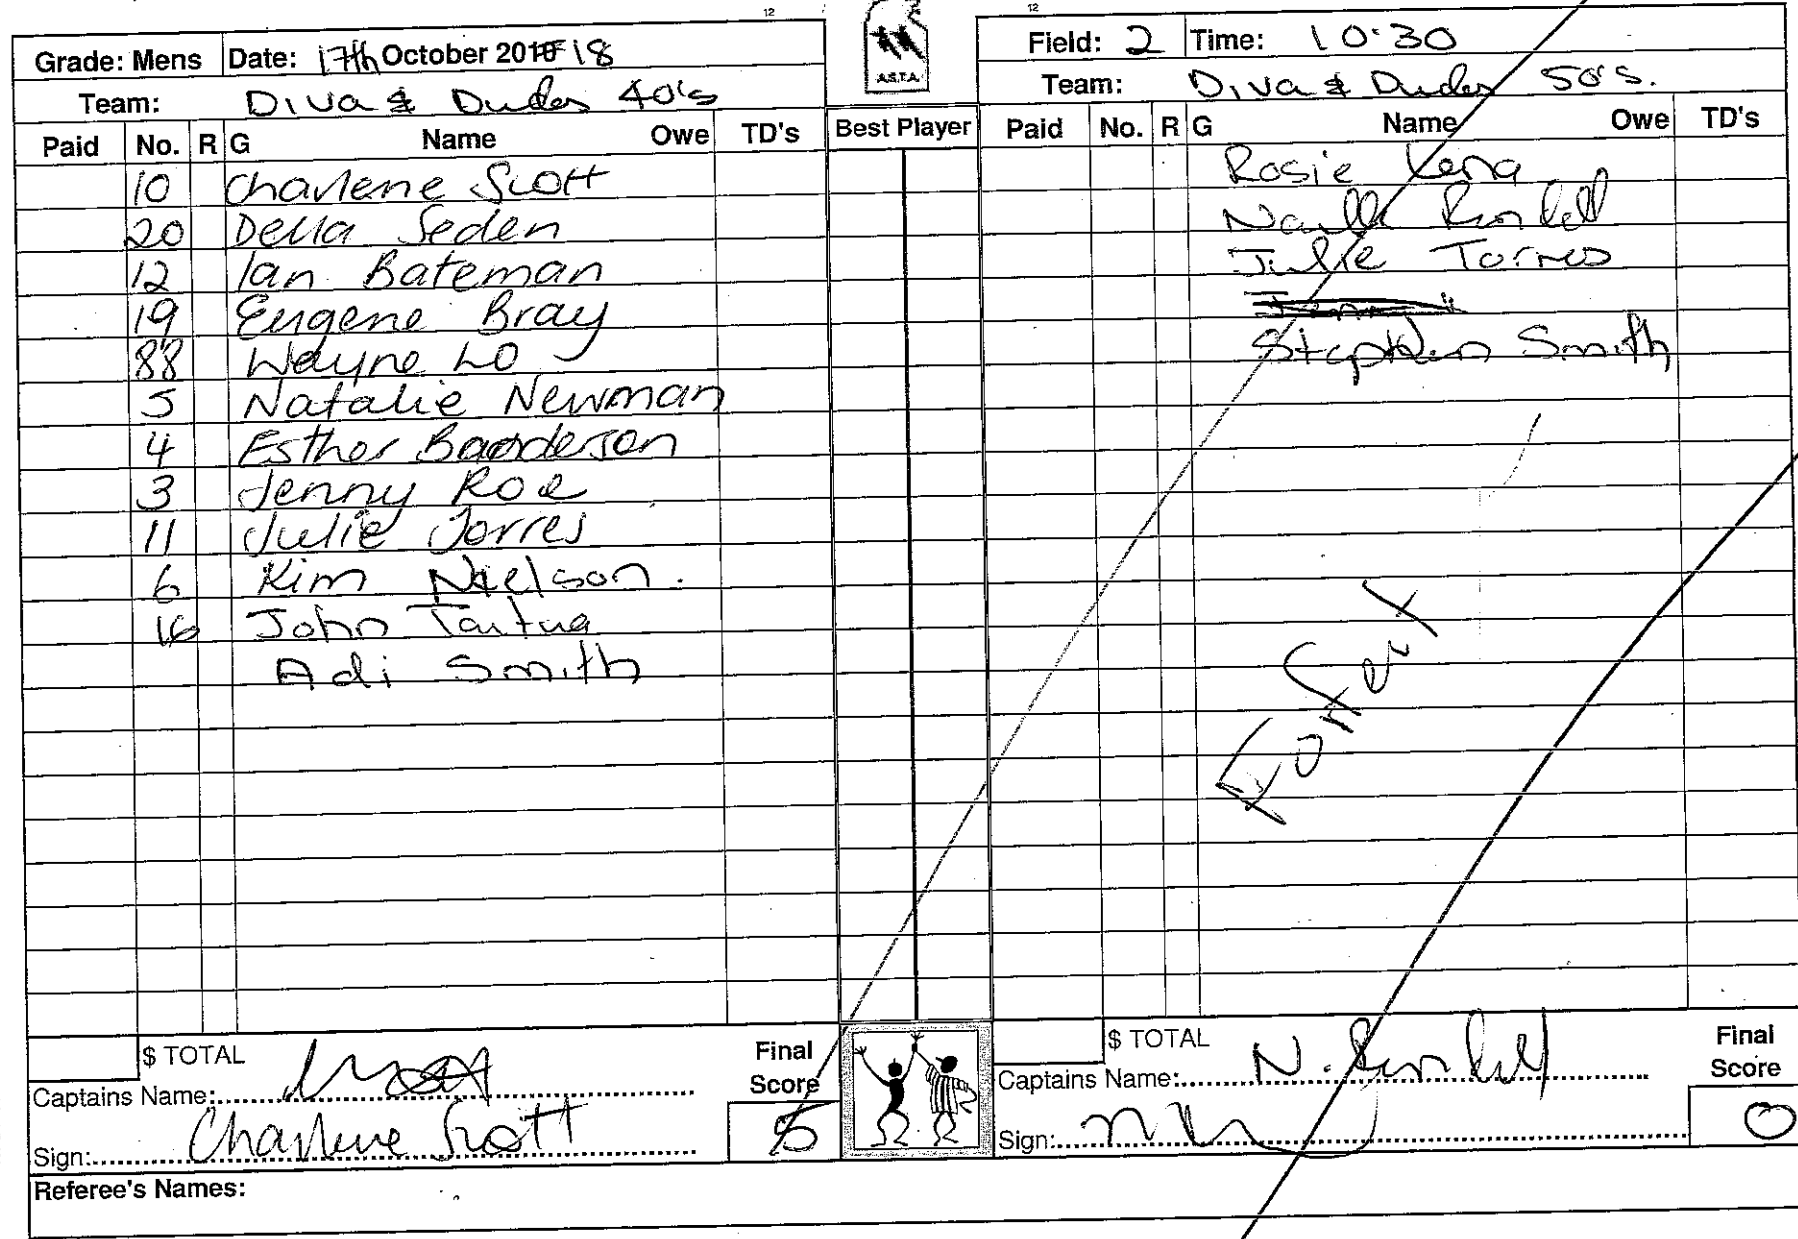 12
12
Grade: Mens Date: 17th October 2018
Team: Diva & Dudes 40's
Paid No. R G Name Owe TD's
10 Charlene Scott
20 Della Seden
12 Ian Bateman
19 Eugene Bray
88 Wayne Lo
5 Natalie Newman
4 Esther
3 Jenny Roe
11 Julie Torres
6 Kim Nielson.
16 John
Adi Smith
$ TOTAL
Captains Name:
Sign: Charlene Scott
Final
Score
5
Referee's Names:
A.S.T.A.
Best Player
Field: 2 Time: 10:30
Team: Diva & Dudes 50's.
Paid No. R G Name Owe TD's
Rosie
Julie Torres
Stephen Smith
Forfeit
$ TOTAL
Captains Name: N.
Sign:
Final
Score
0